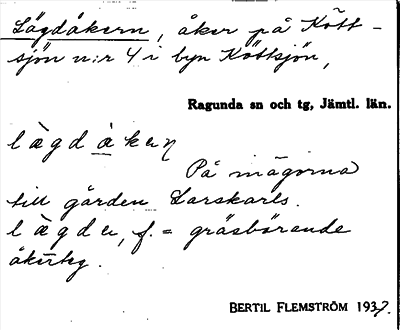 Lägdåkern, åker på Kött-
sjön n:r 4 i byn Köttsjön,
Ragunda sn och tg, Jämtl. län.
På mägorna
till gården Larskarls.
f. = gräsbärande
åkerteg.
BERTIL FLEMSTRÖM 1937.